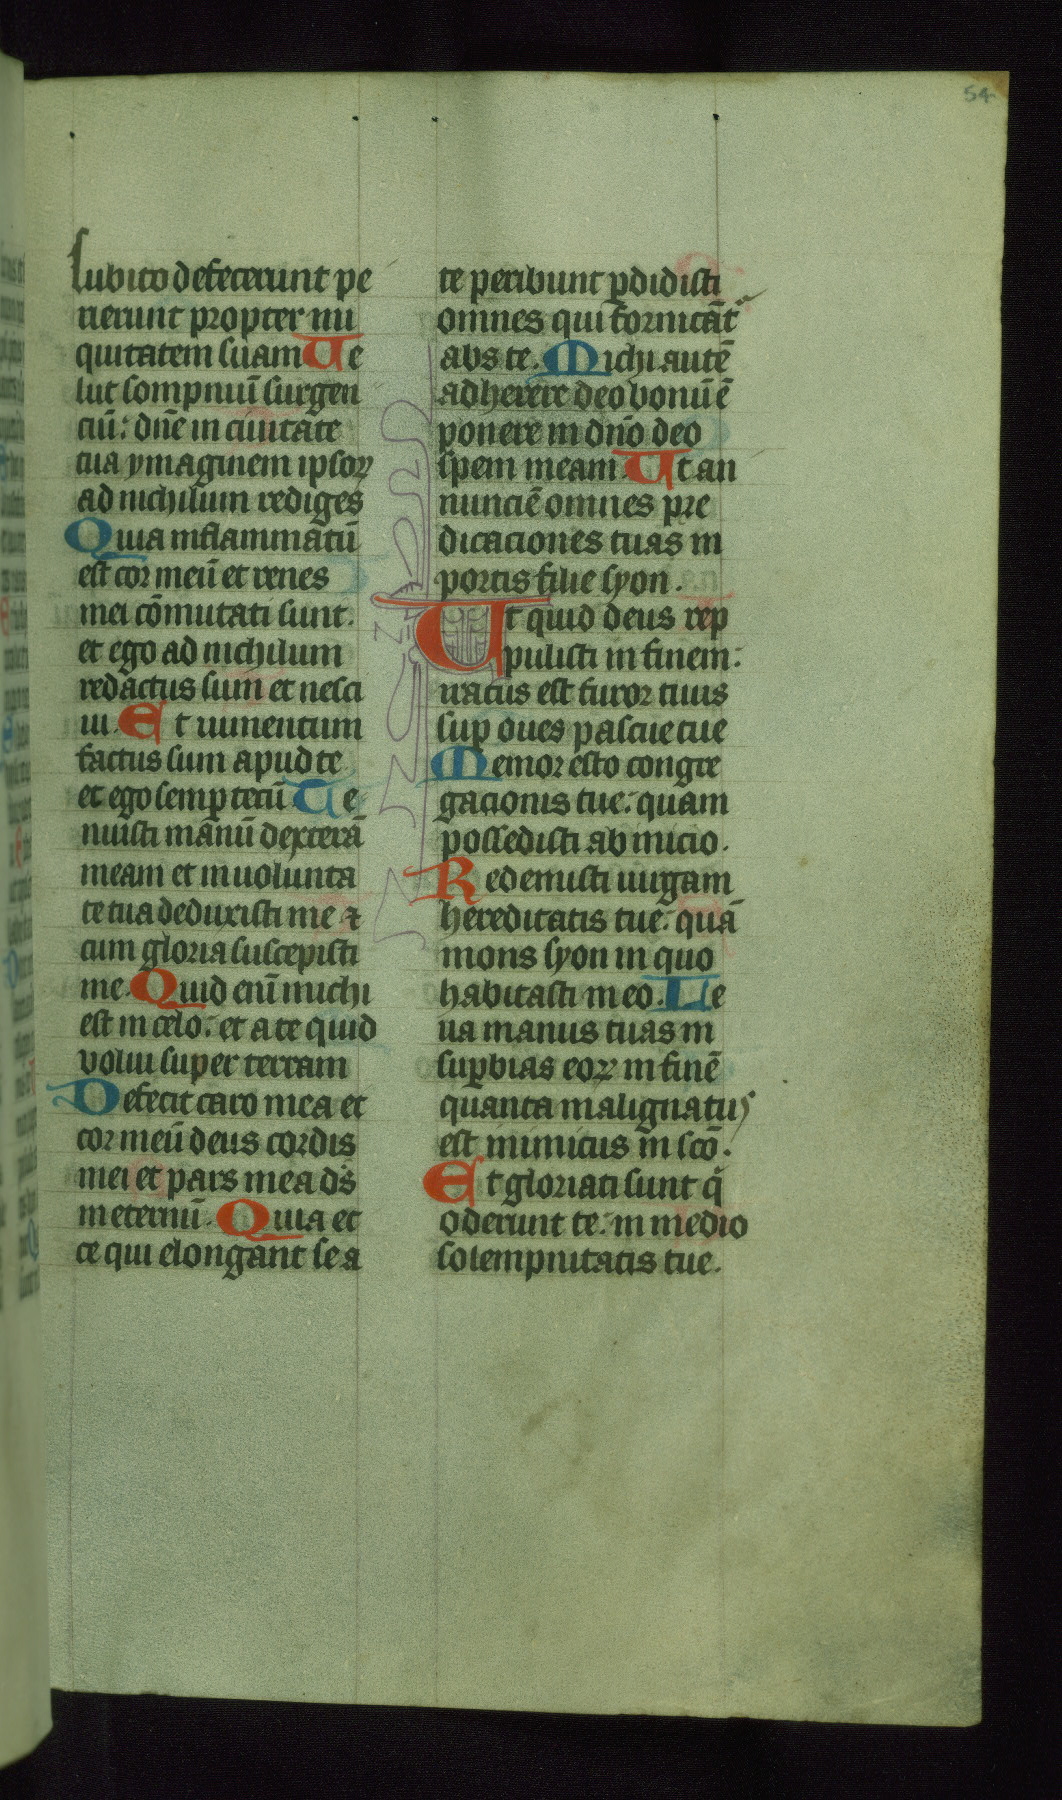 54
subito defecerunt pe
rierunt propter ini
quitatem suam Ue
lut sompniū surgen
ciū: dn̄e in ciuitate
tua ymaginem ipsoꝝ
ad nichilum rediges
Quia inflammatū
est cor meū et renes
mei cōmutati sunt.
et ego ad nichilum
redactus sum et nesci
ui. Et iumentum
factus sum apud te
et ego semꝑ tecū Te
nuisti manū dexterā
meam et in uolunta
te tua deduxisti me ⁊
cum gloria suscepisti
me. Quid enī michi
est in celo: et a te quid
volui super terram
Defecit caro mea et
cor meū deus cordis
mei et pars mea ds̄
in eternū. Quia ec
ce qui elongant se a
te peribunt ꝑdidisti
omnes qui fornicāt᷑
abs te. Michi autē
adherere deo bonū ē
ponere in dn̄o deo
spem meam. Ut an
nunciē omnes pre
dicaciones tuas in
portis filie syon.
Ut quid deus rep
pulisti in finem:
iratus est furor tuus
suꝑ oues pascue tue
Memor esto congre
gacionis tue: quam
possedisti ab inicio.
Redemisti uirgam
hereditatis tue: quā
mons syon in quo
habitasti in eo. Le
ua manus tuas in
suꝑbias eoꝝ in finē
quanta malignatus
est inimicus in scō.
Et gloriati sunt q̇
oderunt te: in medio
solempnitatis tue.